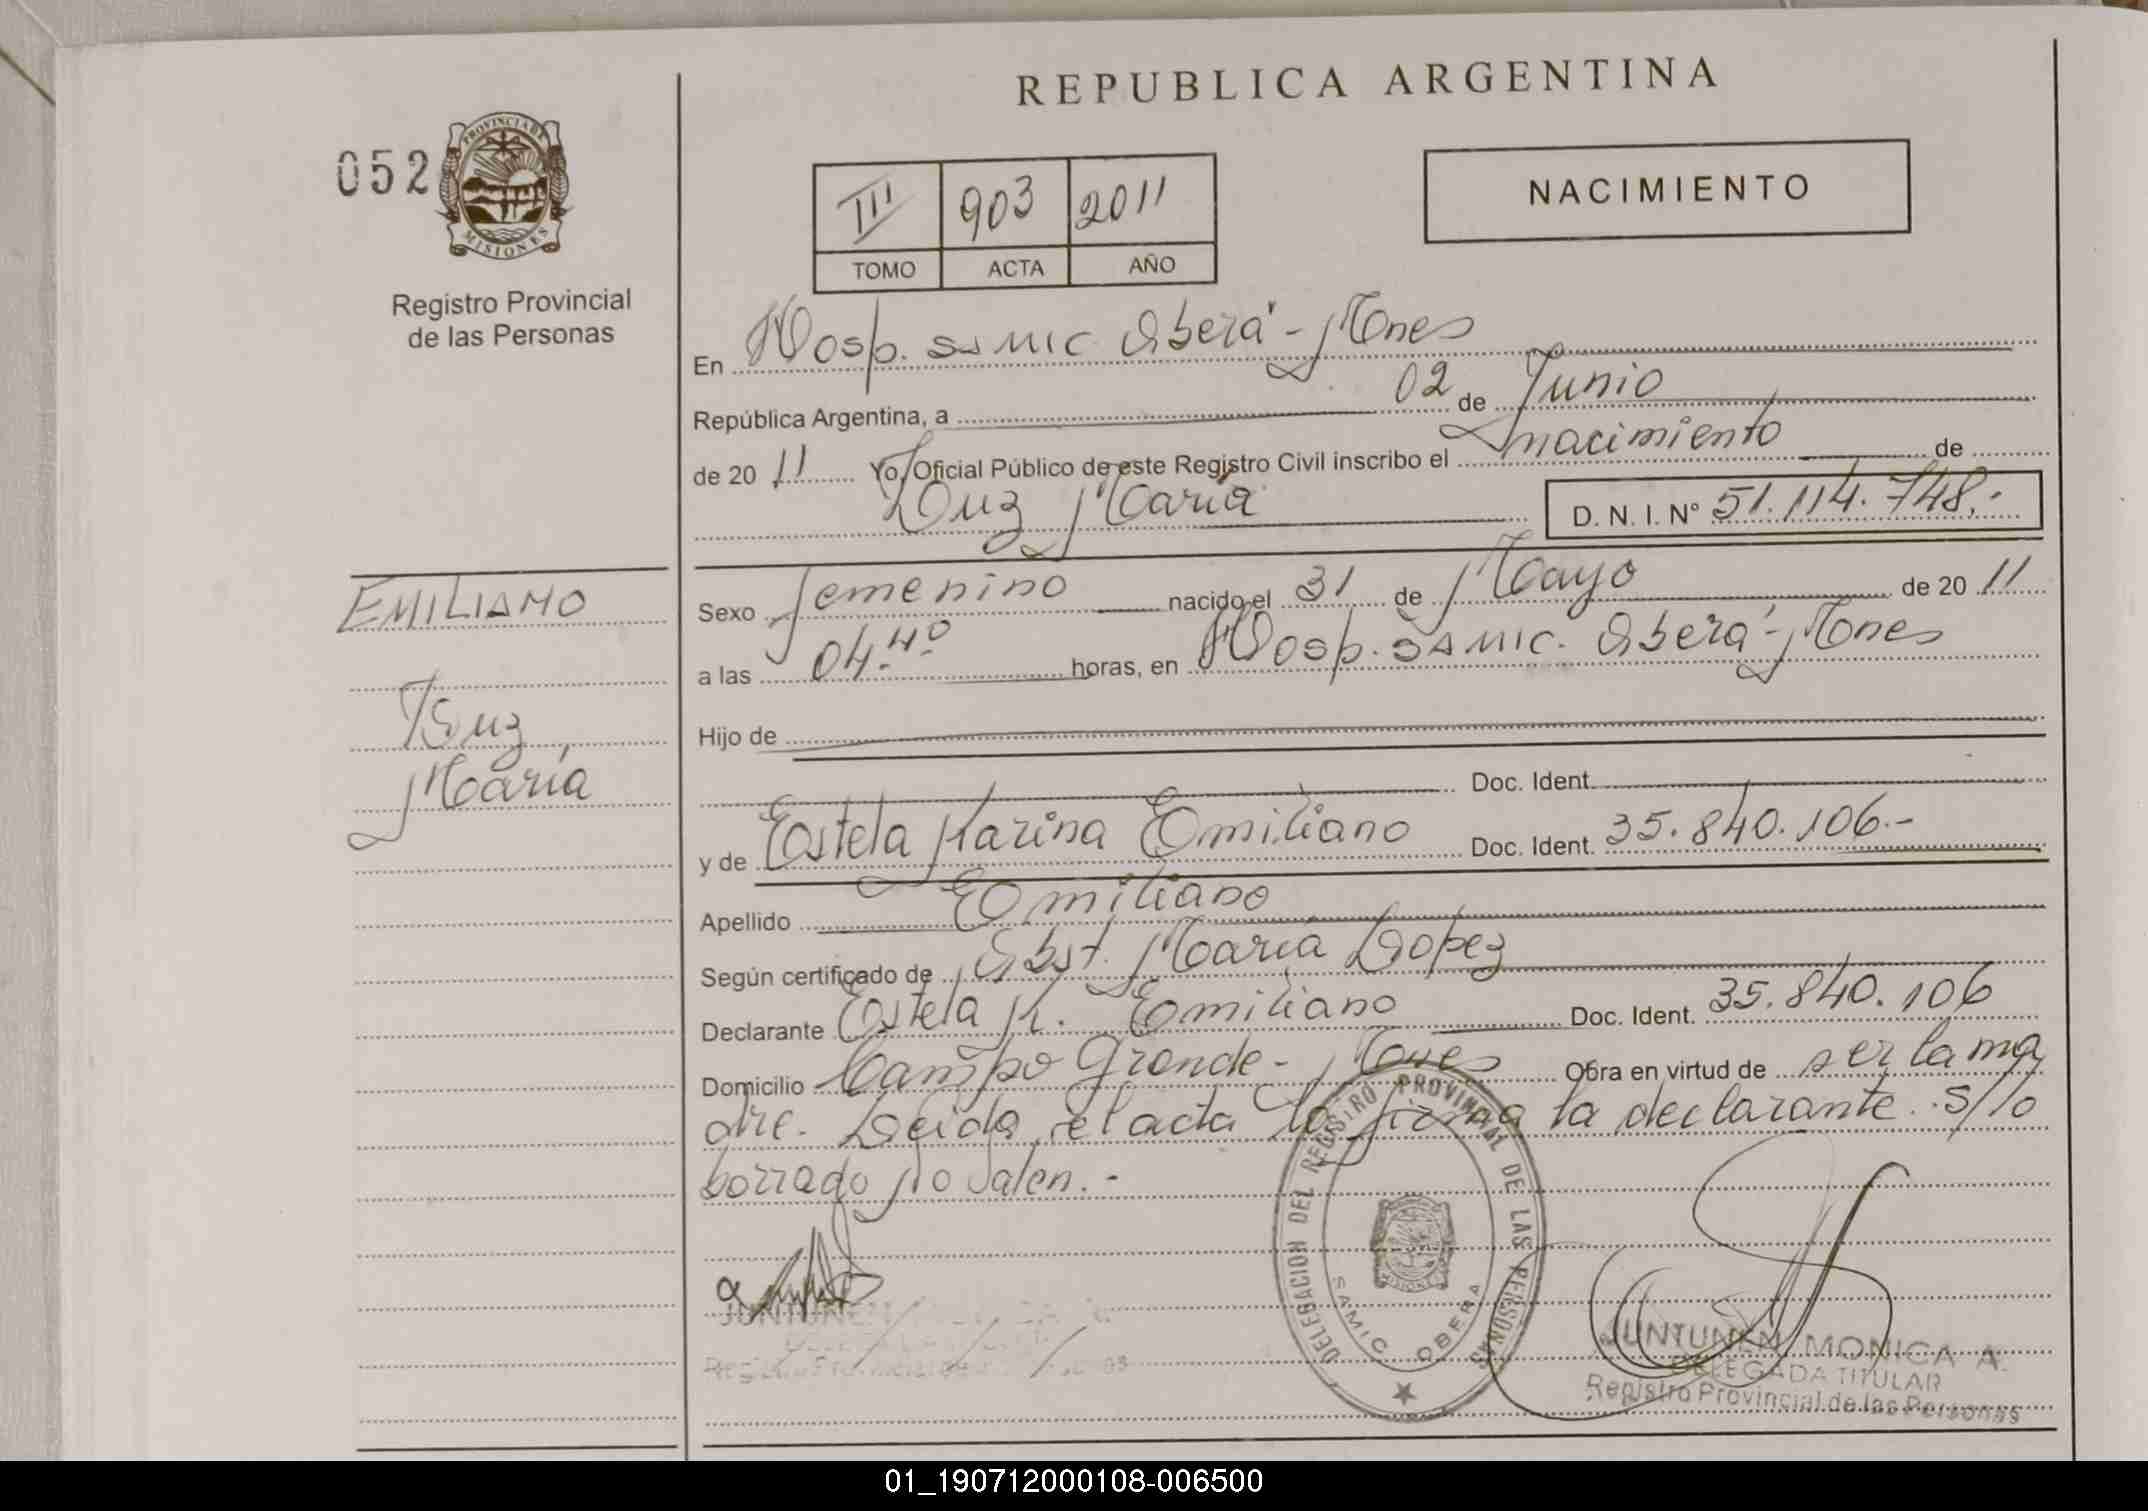 REPUBLICA ARGENTINA
052
PROVINCIA DE
MISIONES
Registro Provincial
de las Personas
III 903 2011
TOMO ACTA AÑO
NACIMIENTO
En Hosp. SAMIC Oberá - Mnes
República Argentina, a 02 de Junio
de 20 11 Yo, Oficial Público de este Registro Civil inscribo el nacimiento de
Luz María D. N. I. Nº 51.114.748.-
EMILIANO
Luz
María
Sexo femenino nacido el 31 de Mayo de 20 11
a las 04.40 horas, en Hosp. SAMIC. Oberá - Mnes
Hijo de
Doc. Ident.
y de Estela Karina Emiliano Doc. Ident. 35.840.106.-
Apellido Emiliano
Según certificado de Obst. María Lopez
Declarante Estela K. Emiliano Doc. Ident. 35.840.106
Domicilio Campo Grande - Mnes Obra en virtud de ser la ma
dre. Leida el acta la firma la declarante. S/lo
borrado No valen.-
DELEGACION DEL REGISTRO PROVINCIAL DE LAS PERSONAS
MISIONES
SAMIC OBERA
JUNTUNEN
JUNTUNEN MONICA A.
DELEGADA TITULAR
Registro Provincial de las Personas
01_190712000108-006500